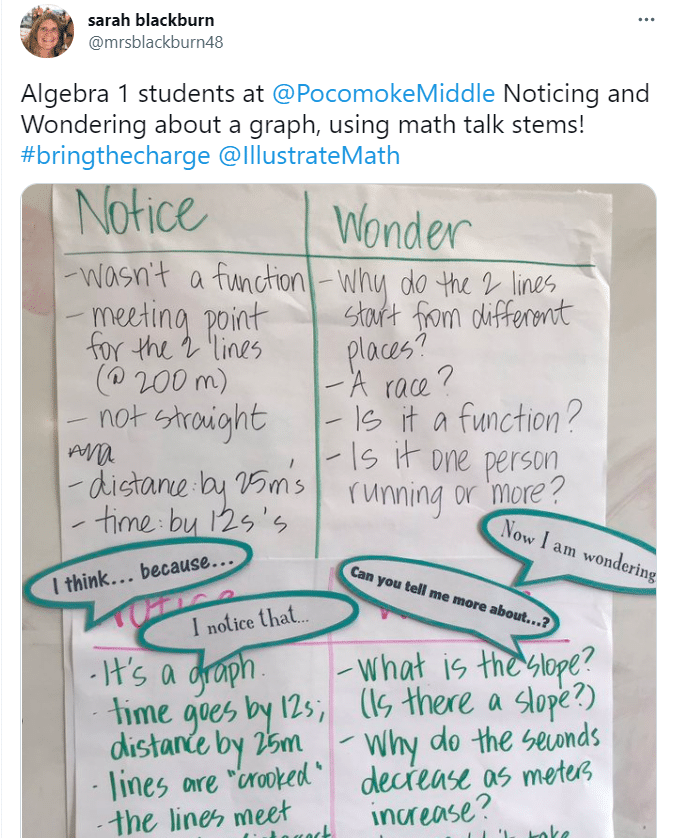 sarah blackburn
@mrsblackburn48
Algebra 1 students at @PocomokeMiddle Noticing and
Wondering about a graph, using math talk stems!
#bringthecharge @IllustrateMath
Notice
-Wasn't a function
- meeting point
for the 2 lines
(@ 200 m)
- not straight
- distance: by 25m's
- time: by 12s's
Wonder
- Why do the 2 lines
start from different
places?
- A race?
- Is it a function?
- Is it one person
running or more?
I think... because...
I notice that...
Can you tell me more about...?
Now I am wondering
- It's a graph.
- time goes by 12s;
distance by 25m
- lines are "crooked"
- the lines meet
- What is the slope?
(Is there a slope?)
- Why do the seconds
decrease as meters
increase?